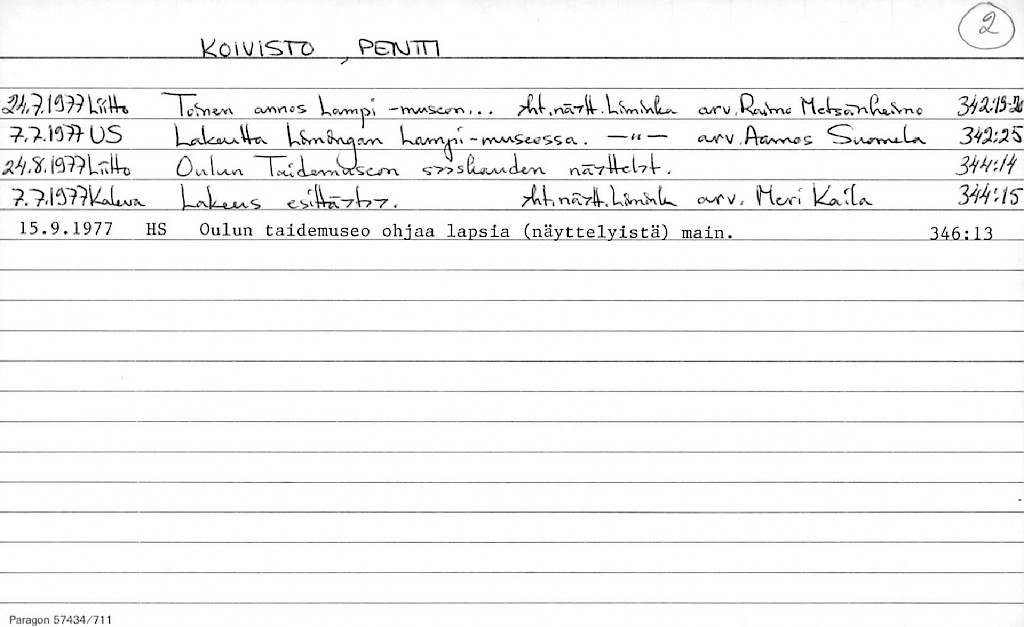 2
KOIVISTO, PENTTI
24.7.1977 Liitto Toinen annos Lampi-museon... yht.näytt. Liminka arv. Raimo Metsänheimo 342:19-20
7.7.1977 US Lakeutta Limingan Lampi-museossa. —"— arv. Aamos Suomela 342:25
24.8.1977 Liitto Oulun Taidemuseon syyskauden näyttelyt. 344:14
7.7.1977 Kaleva Lakeus esittäytyy. yht.näytt. Liminka arv. Meri Kaila 344:15
15.9.1977 HS Oulun taidemuseo ohjaa lapsia (näyttelyistä) main. 346:13
Paragon 57434/711